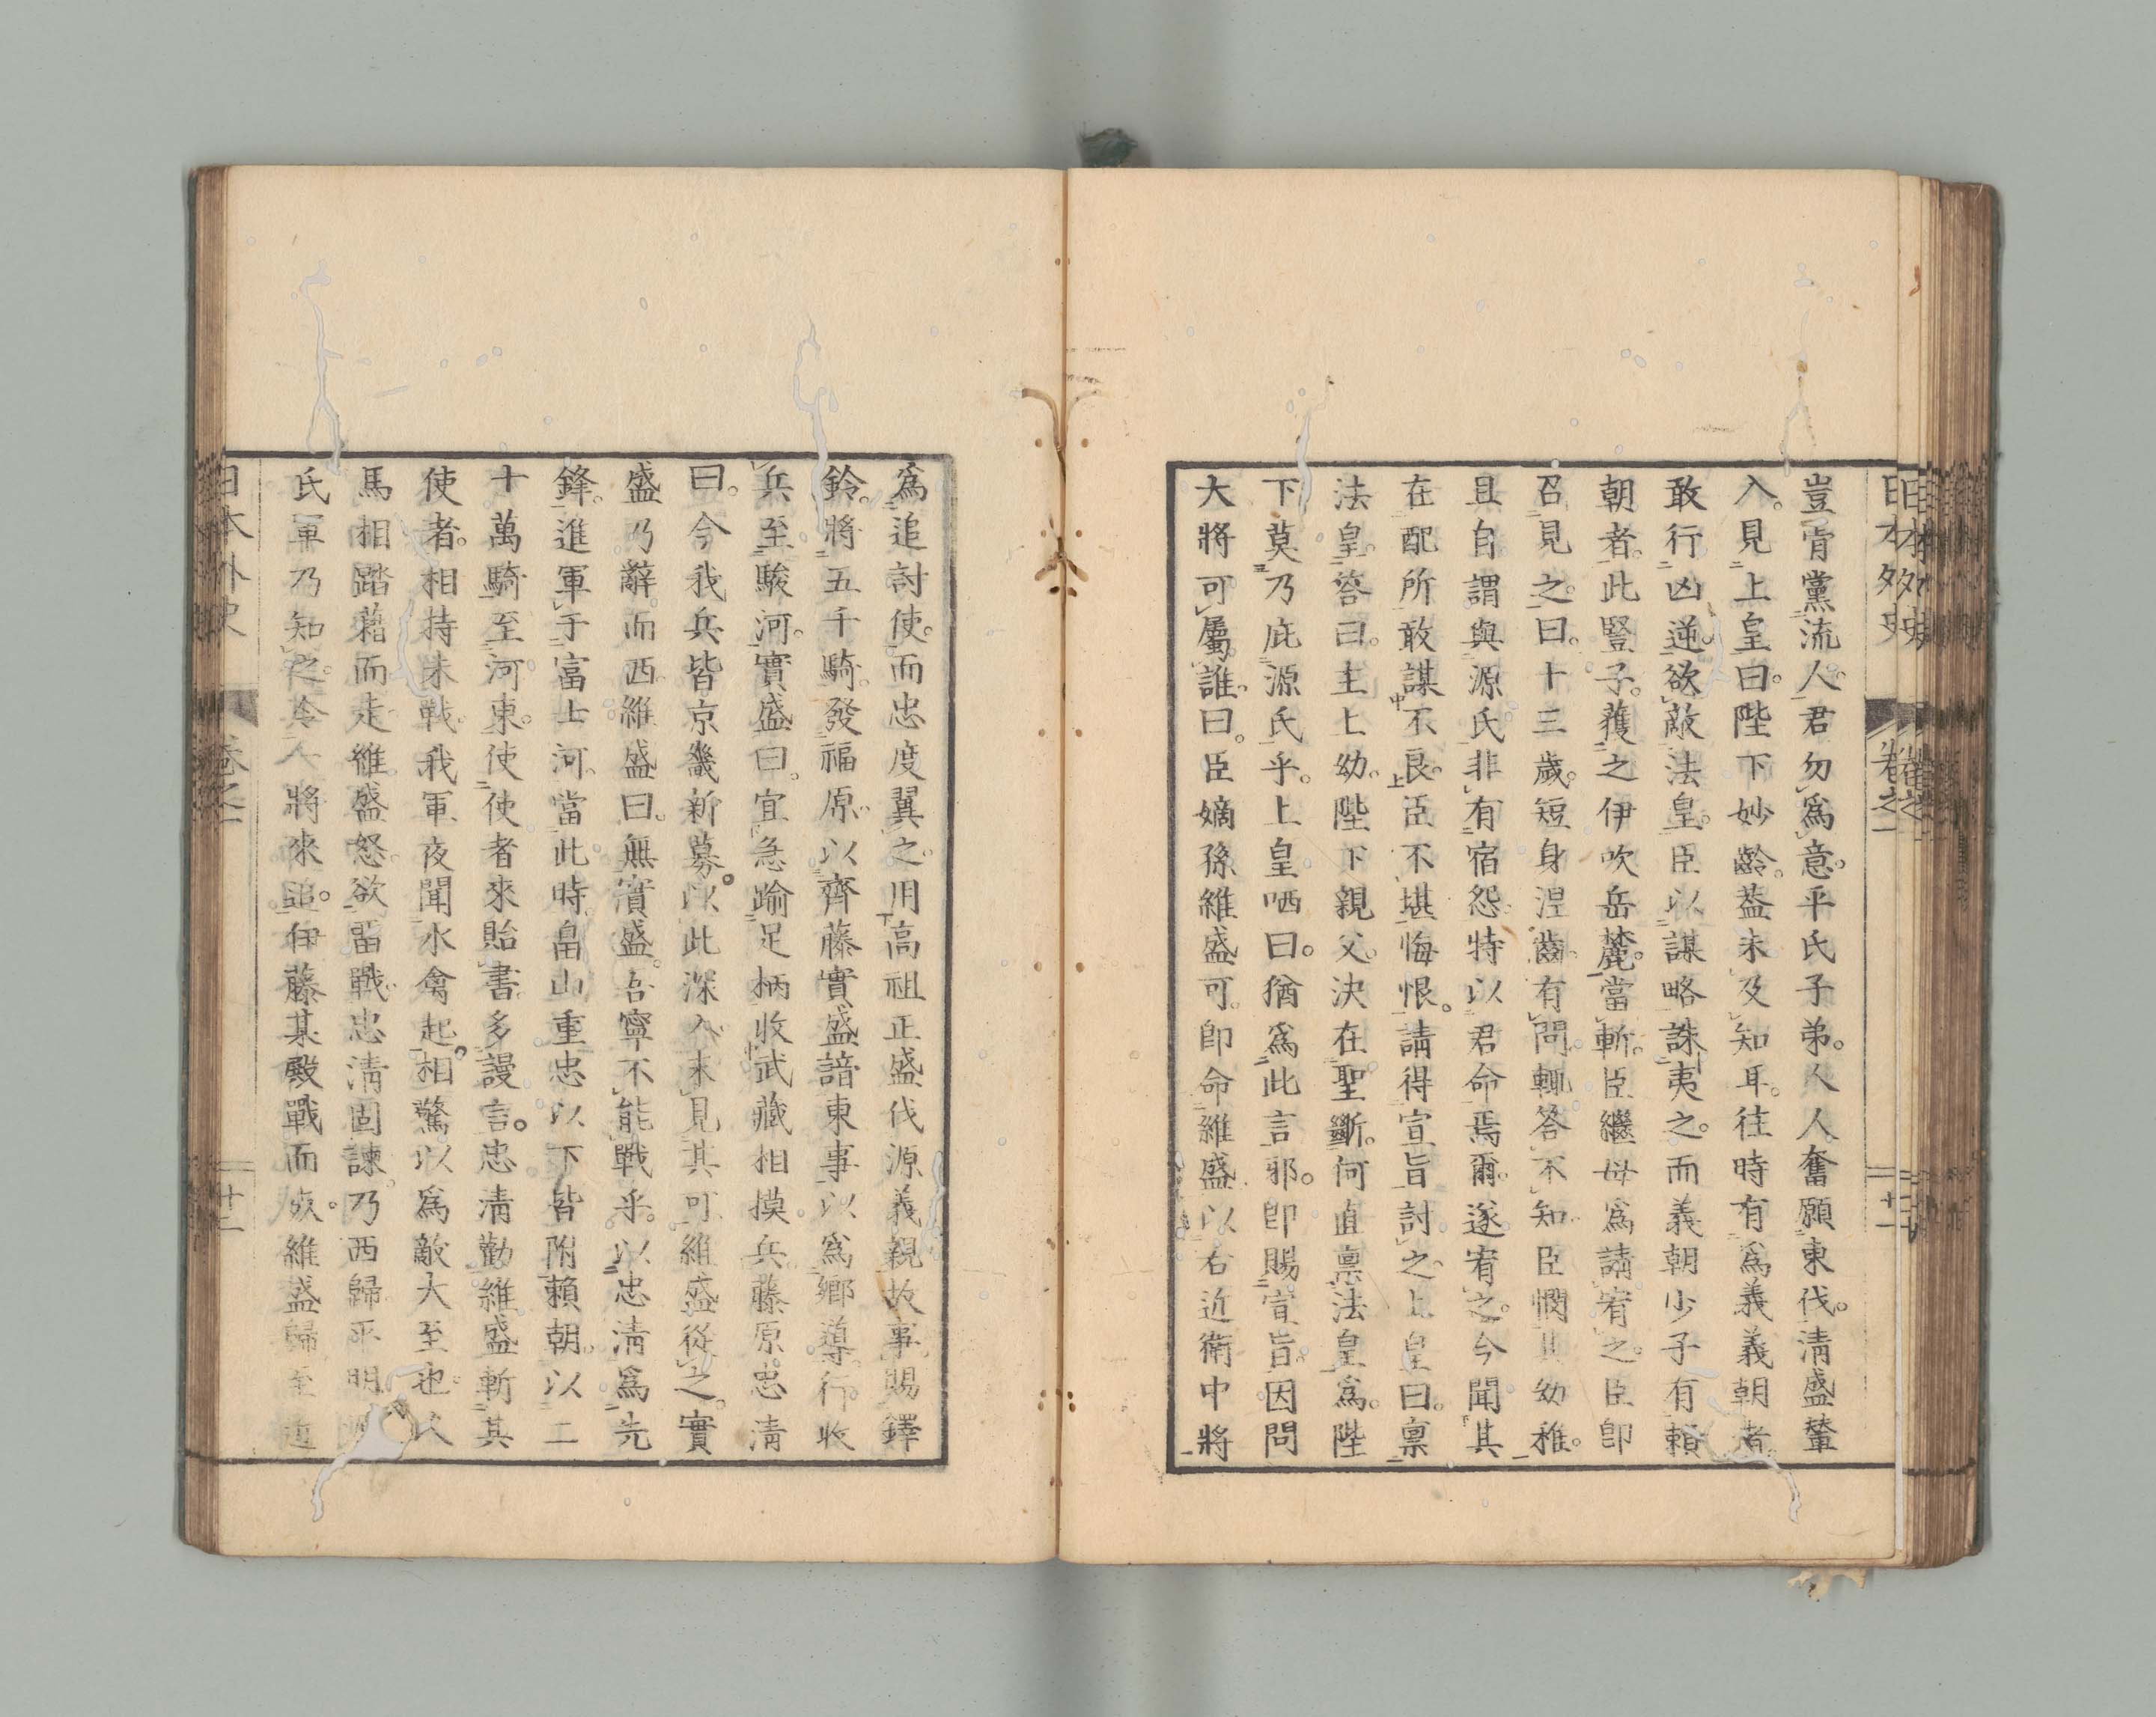 日本外史 卷之一 十一
豈肯黨流人。君勿爲意。平氏子弟。人人奮願東伐。淸盛輦
入。見上皇曰。陛下妙齡。蓋未及知耳。往時有爲義義朝者。
敢行凶逆。欲敵法皇。臣以謀略誅夷之。而義朝少子有賴
朝者。此豎子。獲之伊吹岳麓。當斬。臣繼母爲請宥之。臣卽
召見之。曰。十三歲。短身涅齒。有問輒答不知。臣憫其幼稚。
且自謂與源氏非有宿怨。特以君命焉爾。遂宥之。今聞其
在配所敢謀不良。臣不堪悔恨。請得宣旨討之。上皇曰。稟
法皇。答曰。主上幼。陛下親父。決在聖斷。何直稟法皇爲。陛
下莫乃庇源氏乎。上皇哂曰。猶爲此言邪。卽賜宣旨。因問
大將可屬誰。曰。臣嫡孫維盛可。卽命維盛以右近衛中將
爲追討使。而忠度翼之。用高祖正盛伐源義親故事。賜鐸
鈴。將五千騎。發福原。以齊藤實盛諳東事。以爲鄉導。行收
兵至駿河。實盛曰。宜急踰足柄收武藏相摸兵。藤原忠淸
曰。今我兵皆京畿新募。以此深入。未見其可。維盛從之。實
盛乃辭而西。維盛曰。無實盛。吾寧不能戰乎。以忠淸爲先
鋒。進軍于富士河。當此時。畠山重忠以下皆附賴朝。以二
十萬騎至河東。使使者來貽書。多謾言。忠淸勸維盛斬其
使者。相持未戰。我軍夜聞水禽起。相驚以爲敵大至也。人
馬相踏藉而走。維盛怒。欲留戰。忠淸固諫。乃西歸。平明源
氏軍乃知之。令人將來追。伊藤某殿戰而死。維盛歸至近
日本外史 卷之一 十二